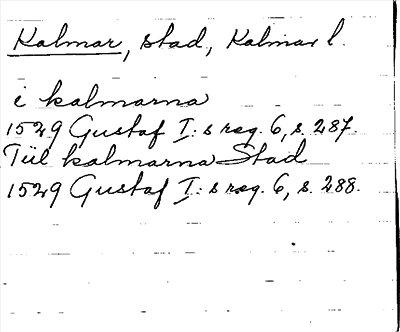 Kalmar, stad, Kalmar l.
i kalmarna
1529 Gustaf I:s reg. 6, s. 287.
Tiil kalmarna Stad
1529 Gustaf I:s reg. 6, s. 288.